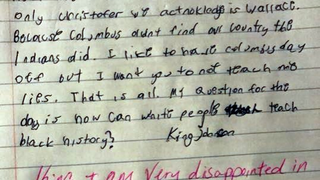 only Christofer we acknokledge is wallace.
Because Columbus didnt find our country the
Indians did. I like to have columbus day
off but I want you to not teach me
lies. That is all. My question for the
day is how can white people teach
black history?
King Johnson
I am very disappointed in